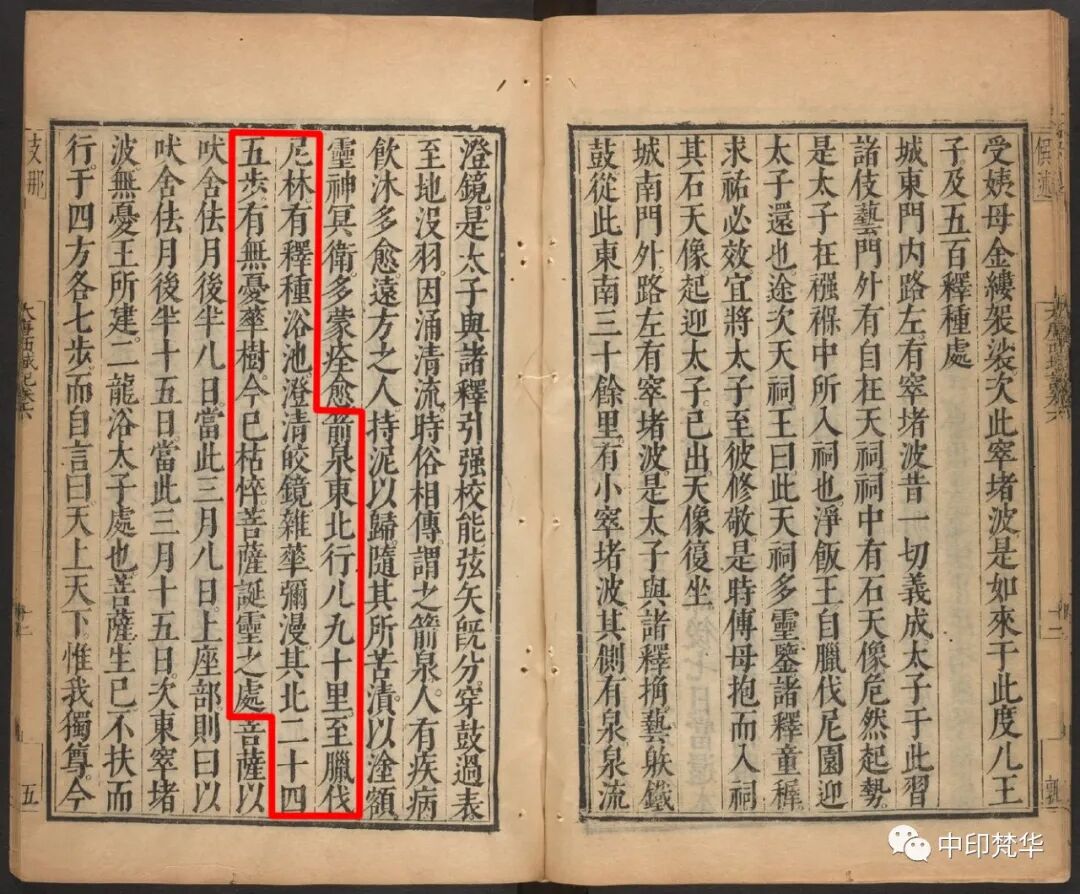 受姨母金縷袈裟次此窣堵波是如來于此度八王
子及五百釋種處
城東門内路左有窣堵波昔一切義成太子于此習
諸伎藝門外有自在天祠祠中有石天像危然起勢
是太子在襁褓中所入祠也淨飯王自臘伐尼園迎
太子還也途次天祠王曰此天祠多靈鑒諸釋童稺
求祐必效宜將太子至彼修敬是時傅母抱而入祠
其石天像起迎太子太子已出天像復坐
城南門外路左有窣堵波是太子與諸釋捔藝射鐵
鼓從此東南三十餘里有小窣堵波其側有泉泉流
澄鏡是太子與諸釋引强校能弦矢旣分穿鼓過表
至地没羽因涌清流時俗相傳謂之箭泉人有疾病
飲沐多愈遠方之人持泥以歸隨其所苦漬以塗額
靈神冥衛多蒙痊愈箭泉東北行八九十里至臘伐
尼林有釋種浴池澄清皎鏡雜華彌漫其北二十四
五步有無憂華樹今已枯悴菩薩誕靈之處菩薩以
吠舍佉月後半八日當此三月八日上座部則曰以
吠舍佉月後半十五日當此三月十五日次東窣堵
波無憂王所建二龍浴太子處也菩薩生已不扶而
行于四方各七步而自言曰天上天下惟我獨尊今
五
中印梵华